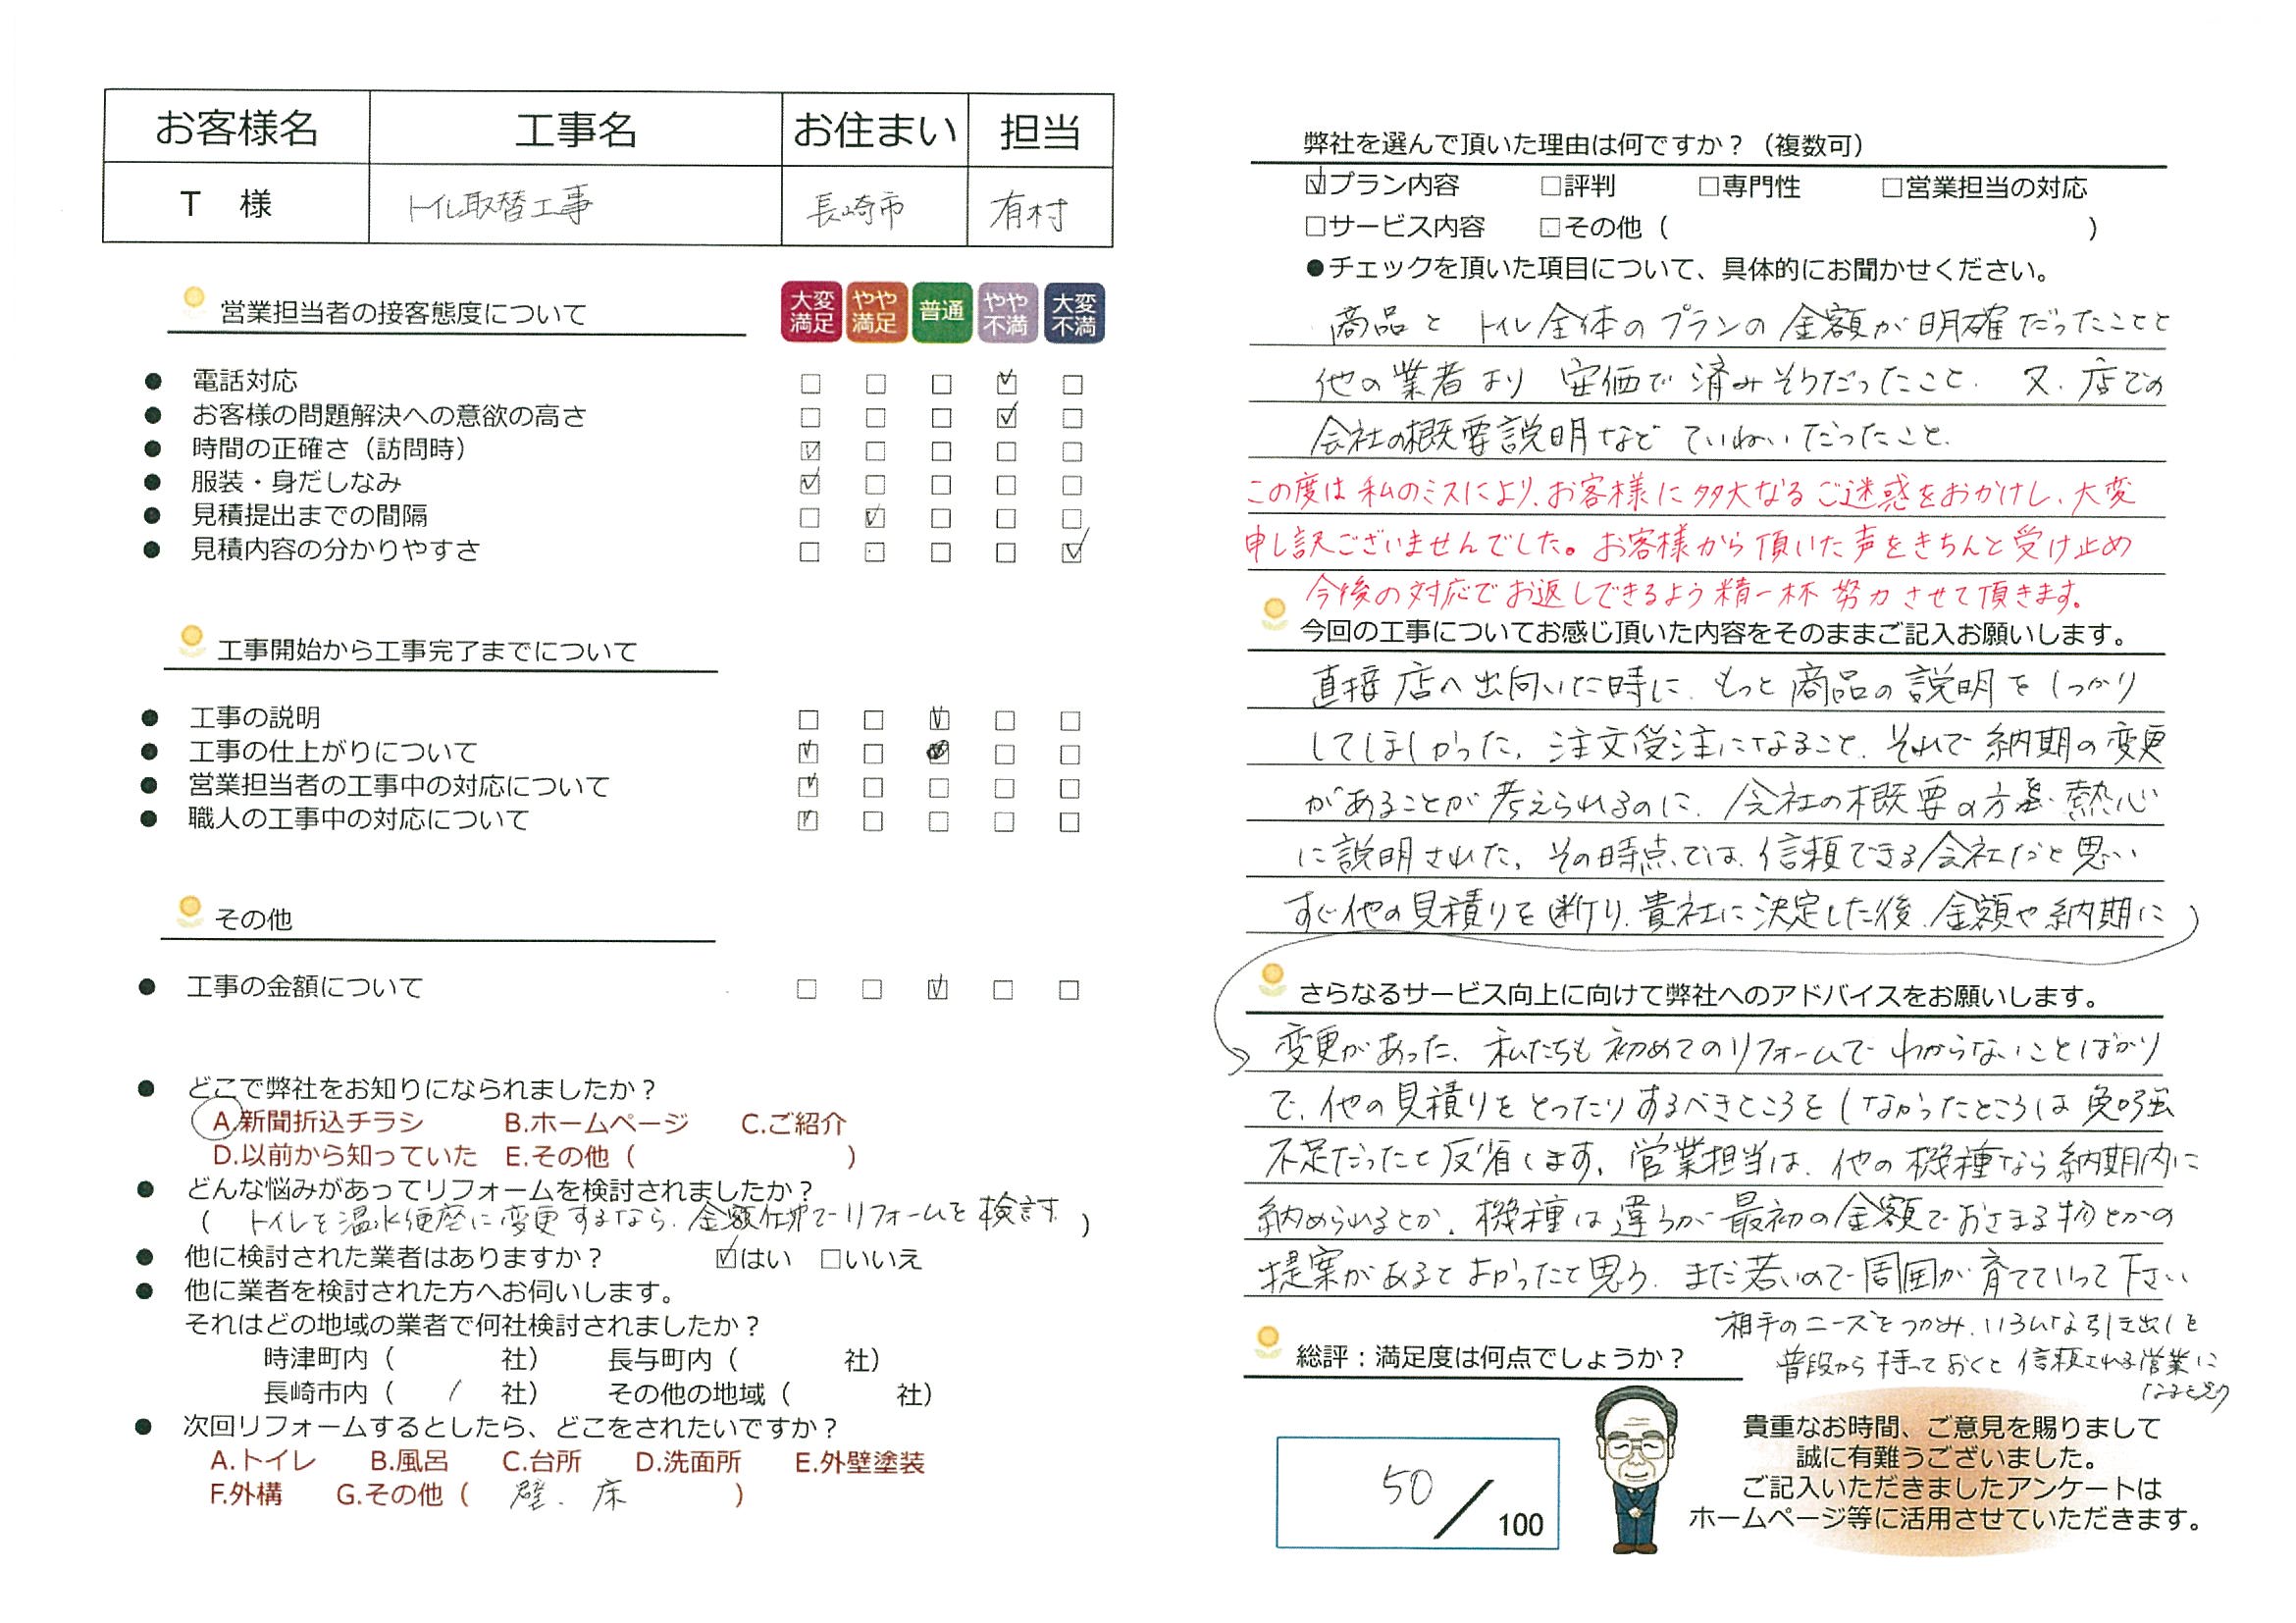 お客様名 工事名 お住まい 担当
T 様 トイレ取替工事 長崎市 有村
営業担当者の接客態度について
大変満足 やや満足 普通 やや不満 大変不満
● 電話対応 □ □ □ ☑ □
● お客様の問題解決への意欲の高さ □ □ □ ☑ □
● 時間の正確さ（訪問時） ☑ □ □ □ □
● 服装・身だしなみ ☑ □ □ □ □
● 見積提出までの間隔 □ ☑ □ □ □
● 見積内容の分かりやすさ □ □ □ □ ☑
工事開始から工事完了までについて
● 工事の説明 □ □ ☑ □ □
● 工事の仕上がりについて ☑ □ ☑ □ □
● 営業担当者の工事中の対応について ☑ □ □ □ □
● 職人の工事中の対応について ☑ □ □ □ □
その他
● 工事の金額について □ □ ☑ □ □
● どこで弊社をお知りになられましたか？
A.新聞折込チラシ B.ホームページ C.ご紹介
D.以前から知っていた E.その他（ ）
● どんな悩みがあってリフォームを検討されましたか？
（ トイレを温水便座に変更するなら、金額次第でリフォームを検討す ）
● 他に検討された業者はありますか？ ☑はい □いいえ
● 他に業者を検討された方へお伺いします。
それはどの地域の業者で何社検討されましたか？
時津町内（ 社） 長与町内（ 社）
長崎市内（ / 社） その他の地域（ 社）
● 次回リフォームするとしたら、どこをされたいですか？
A.トイレ B.風呂 C.台所 D.洗面所 E.外壁塗装
F.外構 G.その他（ 壁、床 ）
弊社を選んで頂いた理由は何ですか？（複数可）
☑プラン内容 □評判 □専門性 □営業担当の対応
□サービス内容 □その他（ ）
●チェックを頂いた項目について、具体的にお聞かせください。
商品と トイレ全体のプランの金額が明確だったことと
他の業者より 安価で済みそうだったこと、又、店での
会社の概要説明など ていねいだったこと、
この度は私のミスにより、お客様に多大なるご迷惑をおかけし、大変
申し訳ございませんでした。お客様から頂いた声をきちんと受け止め
今後の対応でお返しできるよう精一杯努力させて頂きます。
今回の工事についてお感じ頂いた内容をそのままご記入お願いします。
直接店へ出向いた時に、もっと商品の説明をしっかり
してほしかった。注文受注になること、それで納期の変更
があることが考えられるのに、会社の概要の方を熱心
に説明された。その時点では、信頼できる会社だと思い
すぐ他の見積りを断り、貴社に決定した後、金額や納期に
さらなるサービス向上に向けて弊社へのアドバイスをお願いします。
変更があった。私たちも初めてのリフォームで わからないことばかり
で、他の見積りをとったりあるべきところをしなかったところは勉強
不足だったと反省します。営業担当は、他の機種なら納期内に
納められるとか、機種は違うが最初の金額でおさまる物とかの
提案があるとよかったと思う。まだ若いので周囲が育てていって下さい
相手のニーズをつかみ、いろんな引き出しを
普段から持っておくと信頼される営業に
なると思う
総評：満足度は何点でしょうか？
50／100
貴重なお時間、ご意見を賜りまして
誠に有難うございました。
ご記入いただきましたアンケートは
ホームページ等に活用させていただきます。